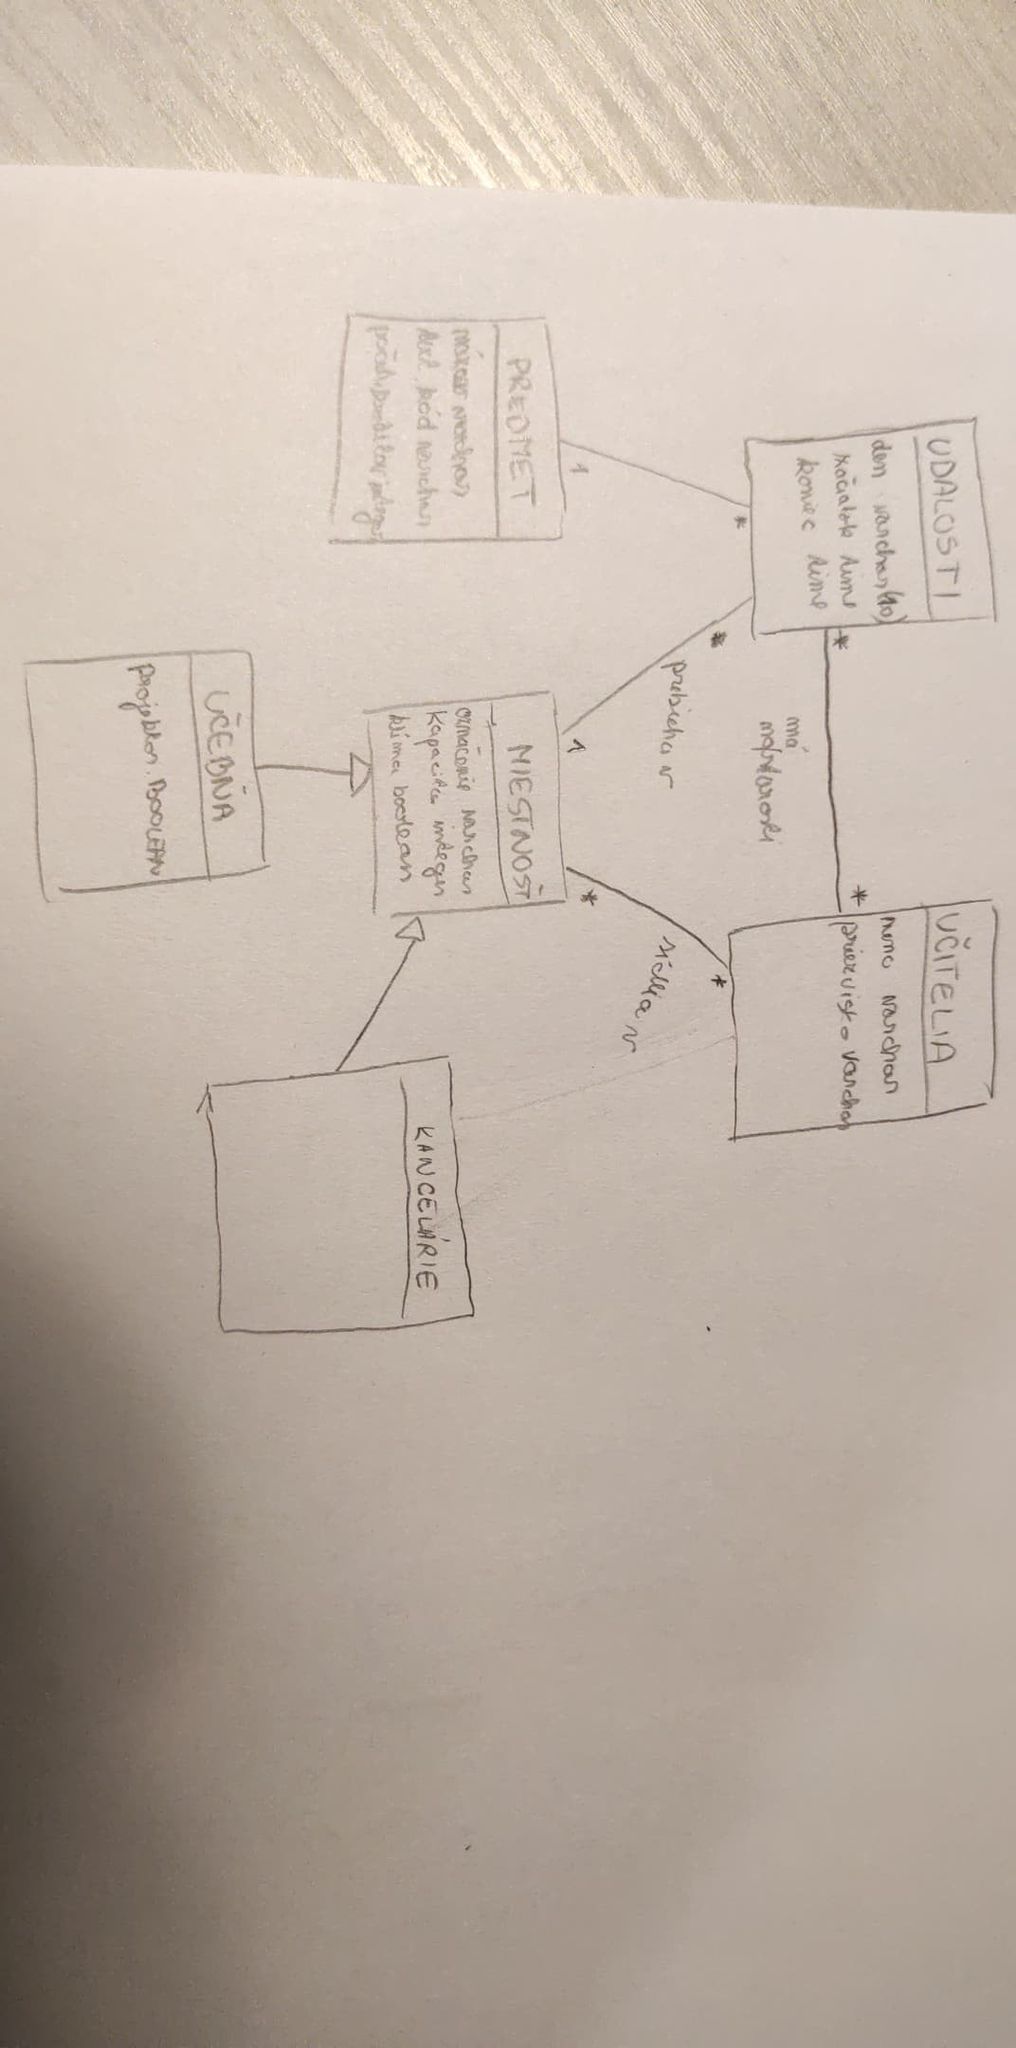 UDALOSTI
den varchar(10)
začiatok time
koniec time
UČITELIA
meno varchar
priezvisko varchar
*
*
má
na starosti
*
*
prebieha v
*
sídlia v
1
1
*
PREDMET
názov varchar
text. kód varchar
integer
MIESTNOSŤ
označenie varchar
kapacita integer
klíma boolean
KANCELÁRIE
UČEBŇA
projektor BOOLEAN